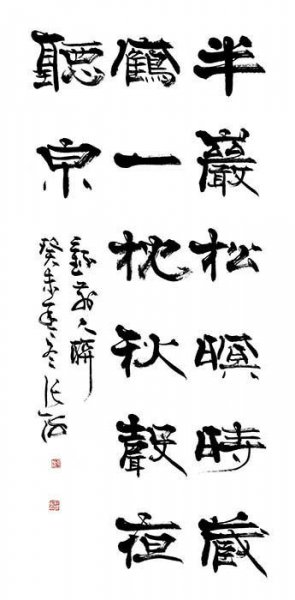 半巖松暝時藏
鶴一枕秋聲夜
聽泉
前人聯
癸未年冬張海